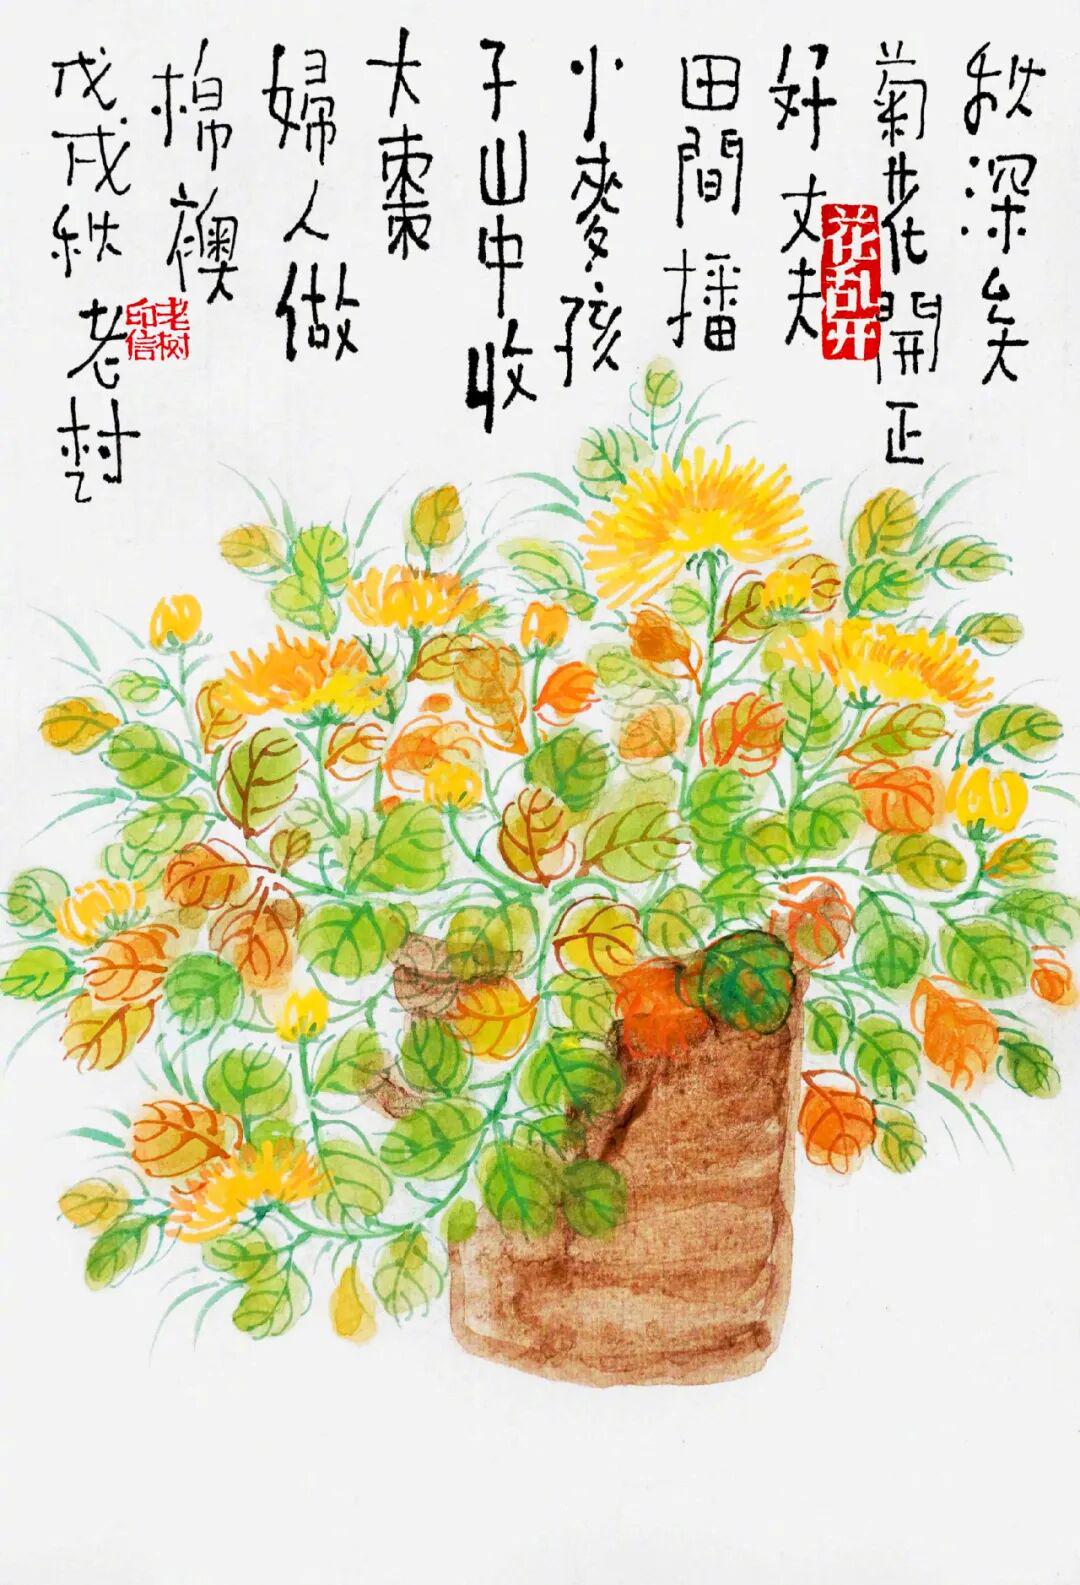 秋深矣
菊花開正
好丈夫
田間播
小麥孩
子山中收
大棗
婦人做
棉襖
戊戌秋老樹
花乱开
老树
印信